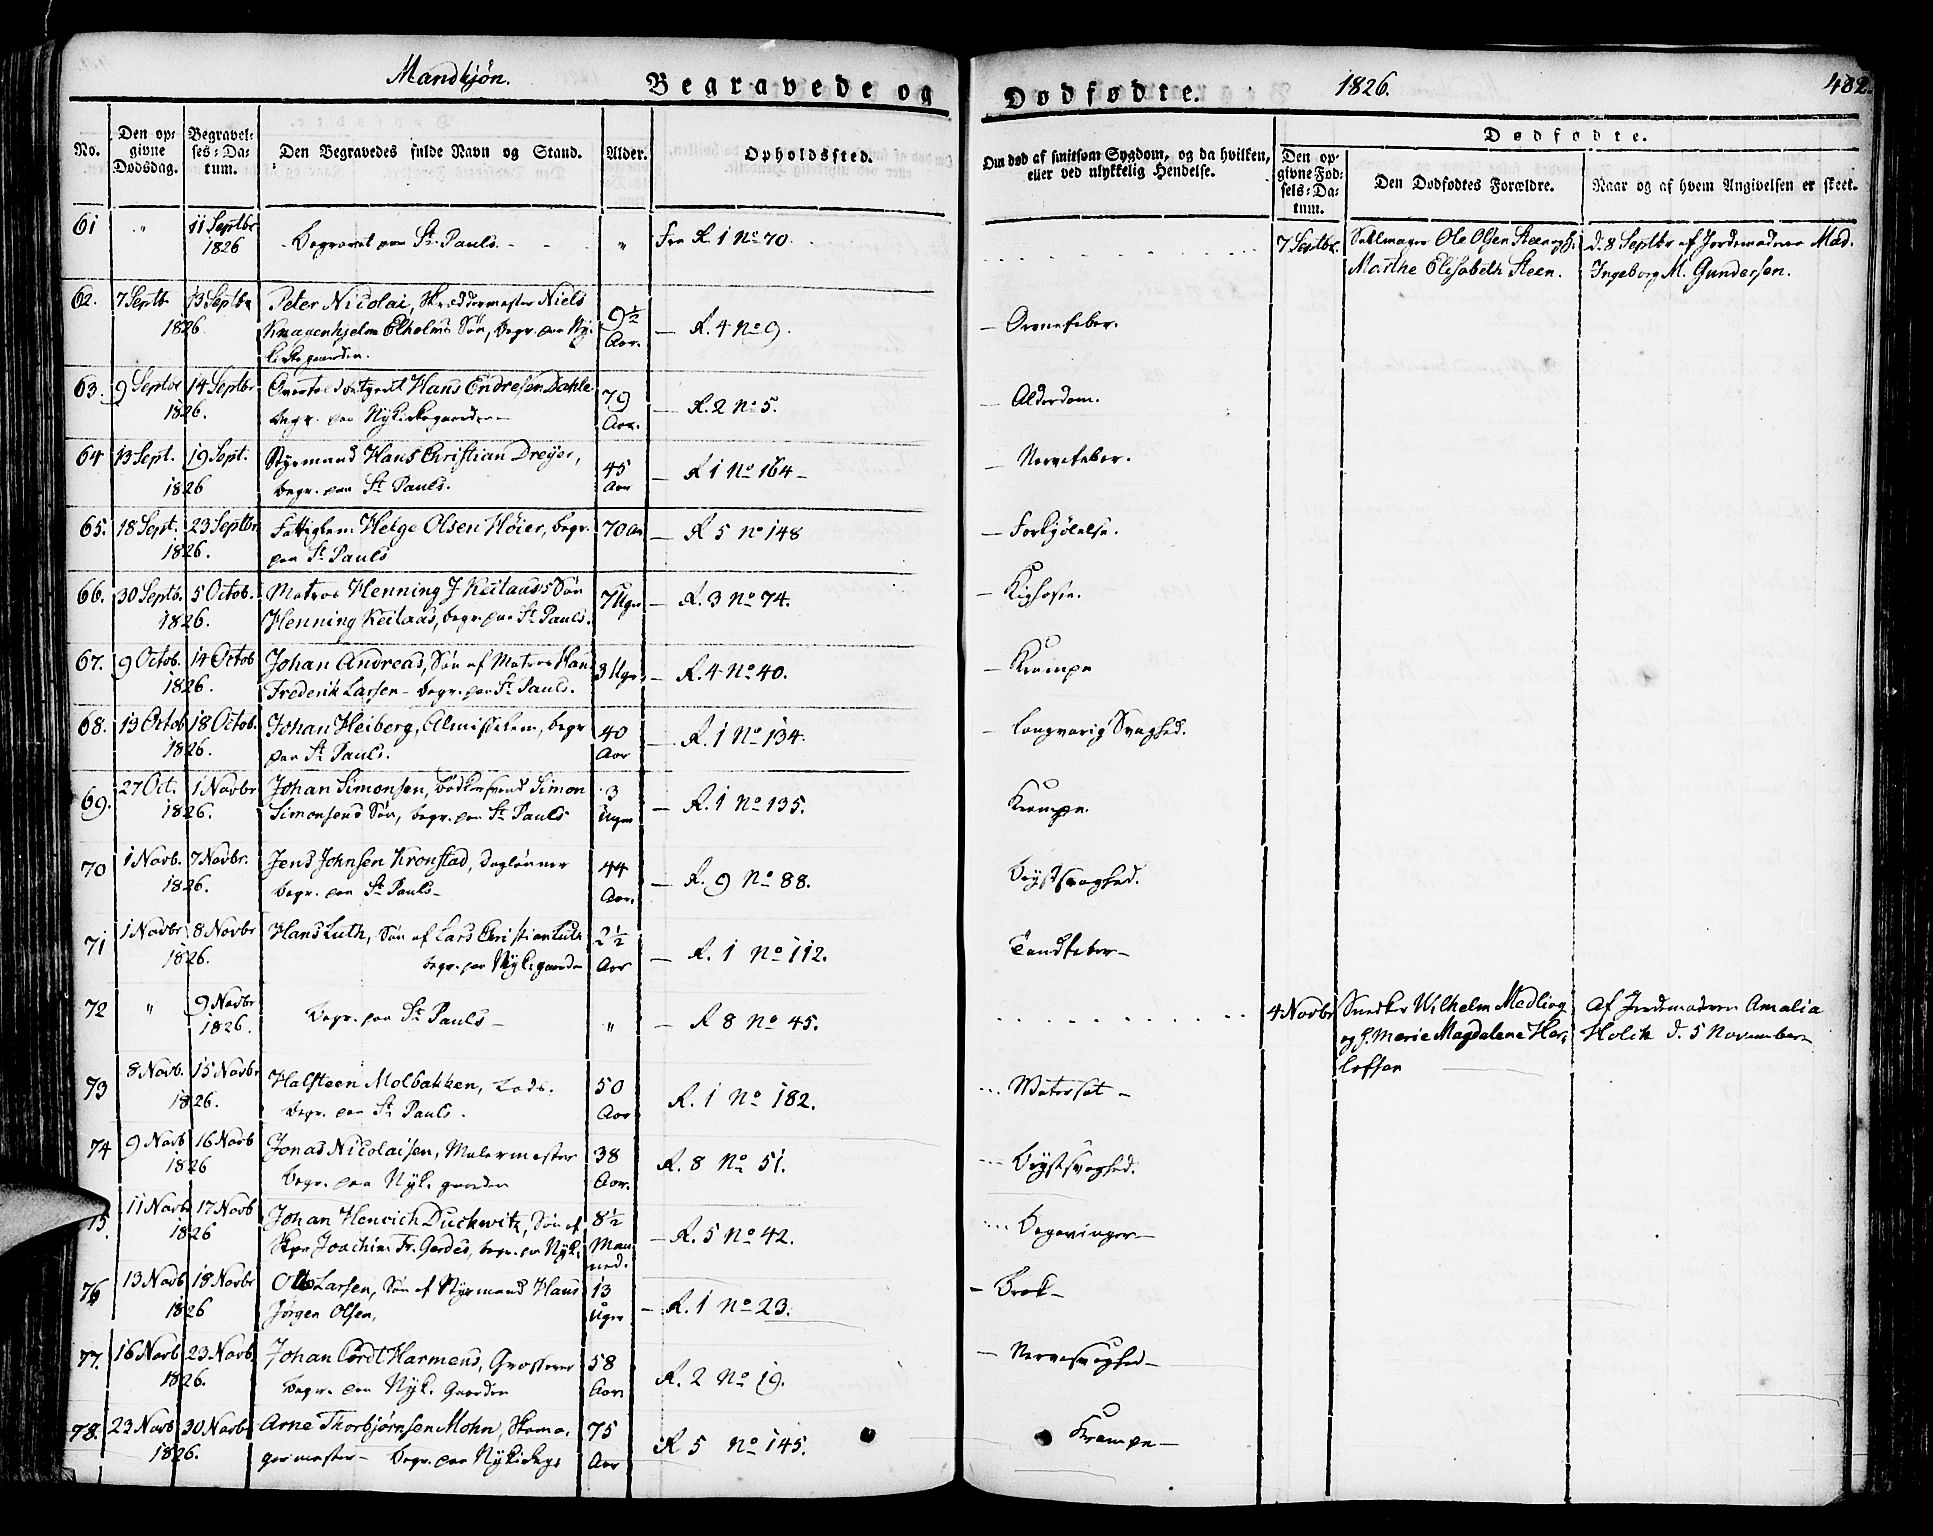 Mandkjøn.
Begravede og
Dødfødte.
1826.
402.
No.
Den op-
givne
Dødsdag.
Begravel-
ses-Da-
tum.
Den Begravedes fulde Navn og Stand.
Alder.
Opholdssted.
Om død af smitsom Sygdom, og da hvilken,
eller ved ulykkelig Hendelse.
Dødfødte.
Den op-
givne Fød-
sels-Da-
tum.
Den Dødfødtes Forældre.
Naar og af hvem Angivelsen er skeet.
61 " 11 Septbr
1826
Begravet paa St. Pauls. " Fra R. 1 No 70.
7 Septbr. Ole Olsen Steen og H. d. 8 Septbr af Jordemoderen Mad.
Marthe Elisabeth Steen. Ingeborg M. Gundersen.
62. 7 Septb 13 Septbr
1826.
Peter Nicolai, Skræddermester Niels
Knagenhjelm Elholms Søn, begr. paa Ny-
kirkegaarden.
9½
Aar.
R. 4 No 9.
Ormefeber.
63. 9 Septbr 14 Septbr
1826.
Hans Endresen Dahle
begr. paa Nykirkegaarden
79
Aar.
R. 2 No 5.
Alderdom.
64 13 Sept. 19 Sept.
1826
Styrmand Hans Christian Dreyer,
begr. paa St. Pauls.
45
Aar
R 1 No 164
Nervefeber.
65. 18 Sept. 23 Septbr
1826.
Fattiglem Helge Olsen Høier, begr.
paa St. Pauls
70 Aar
R 5 No 148
Forkjølelse.
66. 30 Septb. 5 Octob.
1826.
Matros Henning J. Keilaus's Søn
Henning Keilaus, begr. paa St. Pauls.
7 Uger
R. 3 No 74.
Kighoste.
67. 9 Octob. 14 Octob
1826.
Johan Andreas, Søn af Matros Hans
Frederik Larsen - begr. paa St. Pauls.
3 Uger
R. 4 No 40.
Krampe
68. 13 Octob 18 Octob.
1826.
Johan Heiberg, Almisselem, begr
paa St. Pauls.
40
Aar
R. 1 No 134.
Langvarig Svaghed.
69. 27 Oct. 1 Novbr
1826.
Johan Simonsen, Bødkersvend Simon
Simonsens Søn, begr. paa St. Pauls
3
Uger
R. 1 No 135.
Krampe.
70 1 Novb. 7 Novbr.
1826.
Jens Johnsen Kronstad, Dagløner
begr. paa St. Pauls
44
Aar.
R. 9 No 88.
Brystsvaghed.
71 1 Novbr 8 Novbr
1826.
Hans Luth, Søn af Lars Christian Luth
begr. paa Nyk. gaarden
2½
Aar
R. 1 No 112.
Tandfeber
72 " 9 Novbr
1826.
Begr. paa St. Pauls
"
R 8 No 45.
4 Novbr Snedker Wilhelm Madling Af Jordemoderen Amalia
og H. Marie Magdalene Her- Holck d. 5 November
lofsen
73 8 Novb. 15 Novbr
1826.
Halsteen Molbakken, Lods.
begr. paa St. Pauls.
50
Aar
R. 1 No 182.
Watersot
74 9 Novb 16 Novb
1826
Jonas Nicolaisen, Malermester
begr. paa Nyk. gaarden
38
Aar.
R. 8 No 51.
Brystsvaghed.
75. 11 Novb 17 Novb
1826
Johan Henrich Duckwitz, Søn af
Skpr Joachim Fr. Gerdes, begr. paa Nyk.
8½
Maa-
ned.
R. 5 No 42.
Begavinger
76 13 Novb 18 Novbr
1826
Otto Larsen, Søn af Styrmand Hans
Jørgen Olsen,
13
Uger
R. 1 No 23.
Brok
77. 16 Novb 23 Novb.
1826.
Johan Cordt Harmens, Grosserer
begr. paa Nyk. Gaarden
58
Aar
R. 2 No 19.
Nervesvaghed
78. 23 Novb 30 Novbr
1826.
Arne Thorbjørnsen Mohn, Skoma-
germester - begr. paa Nykirkeg.
75
Aar
R 5 No 145.
Krampe